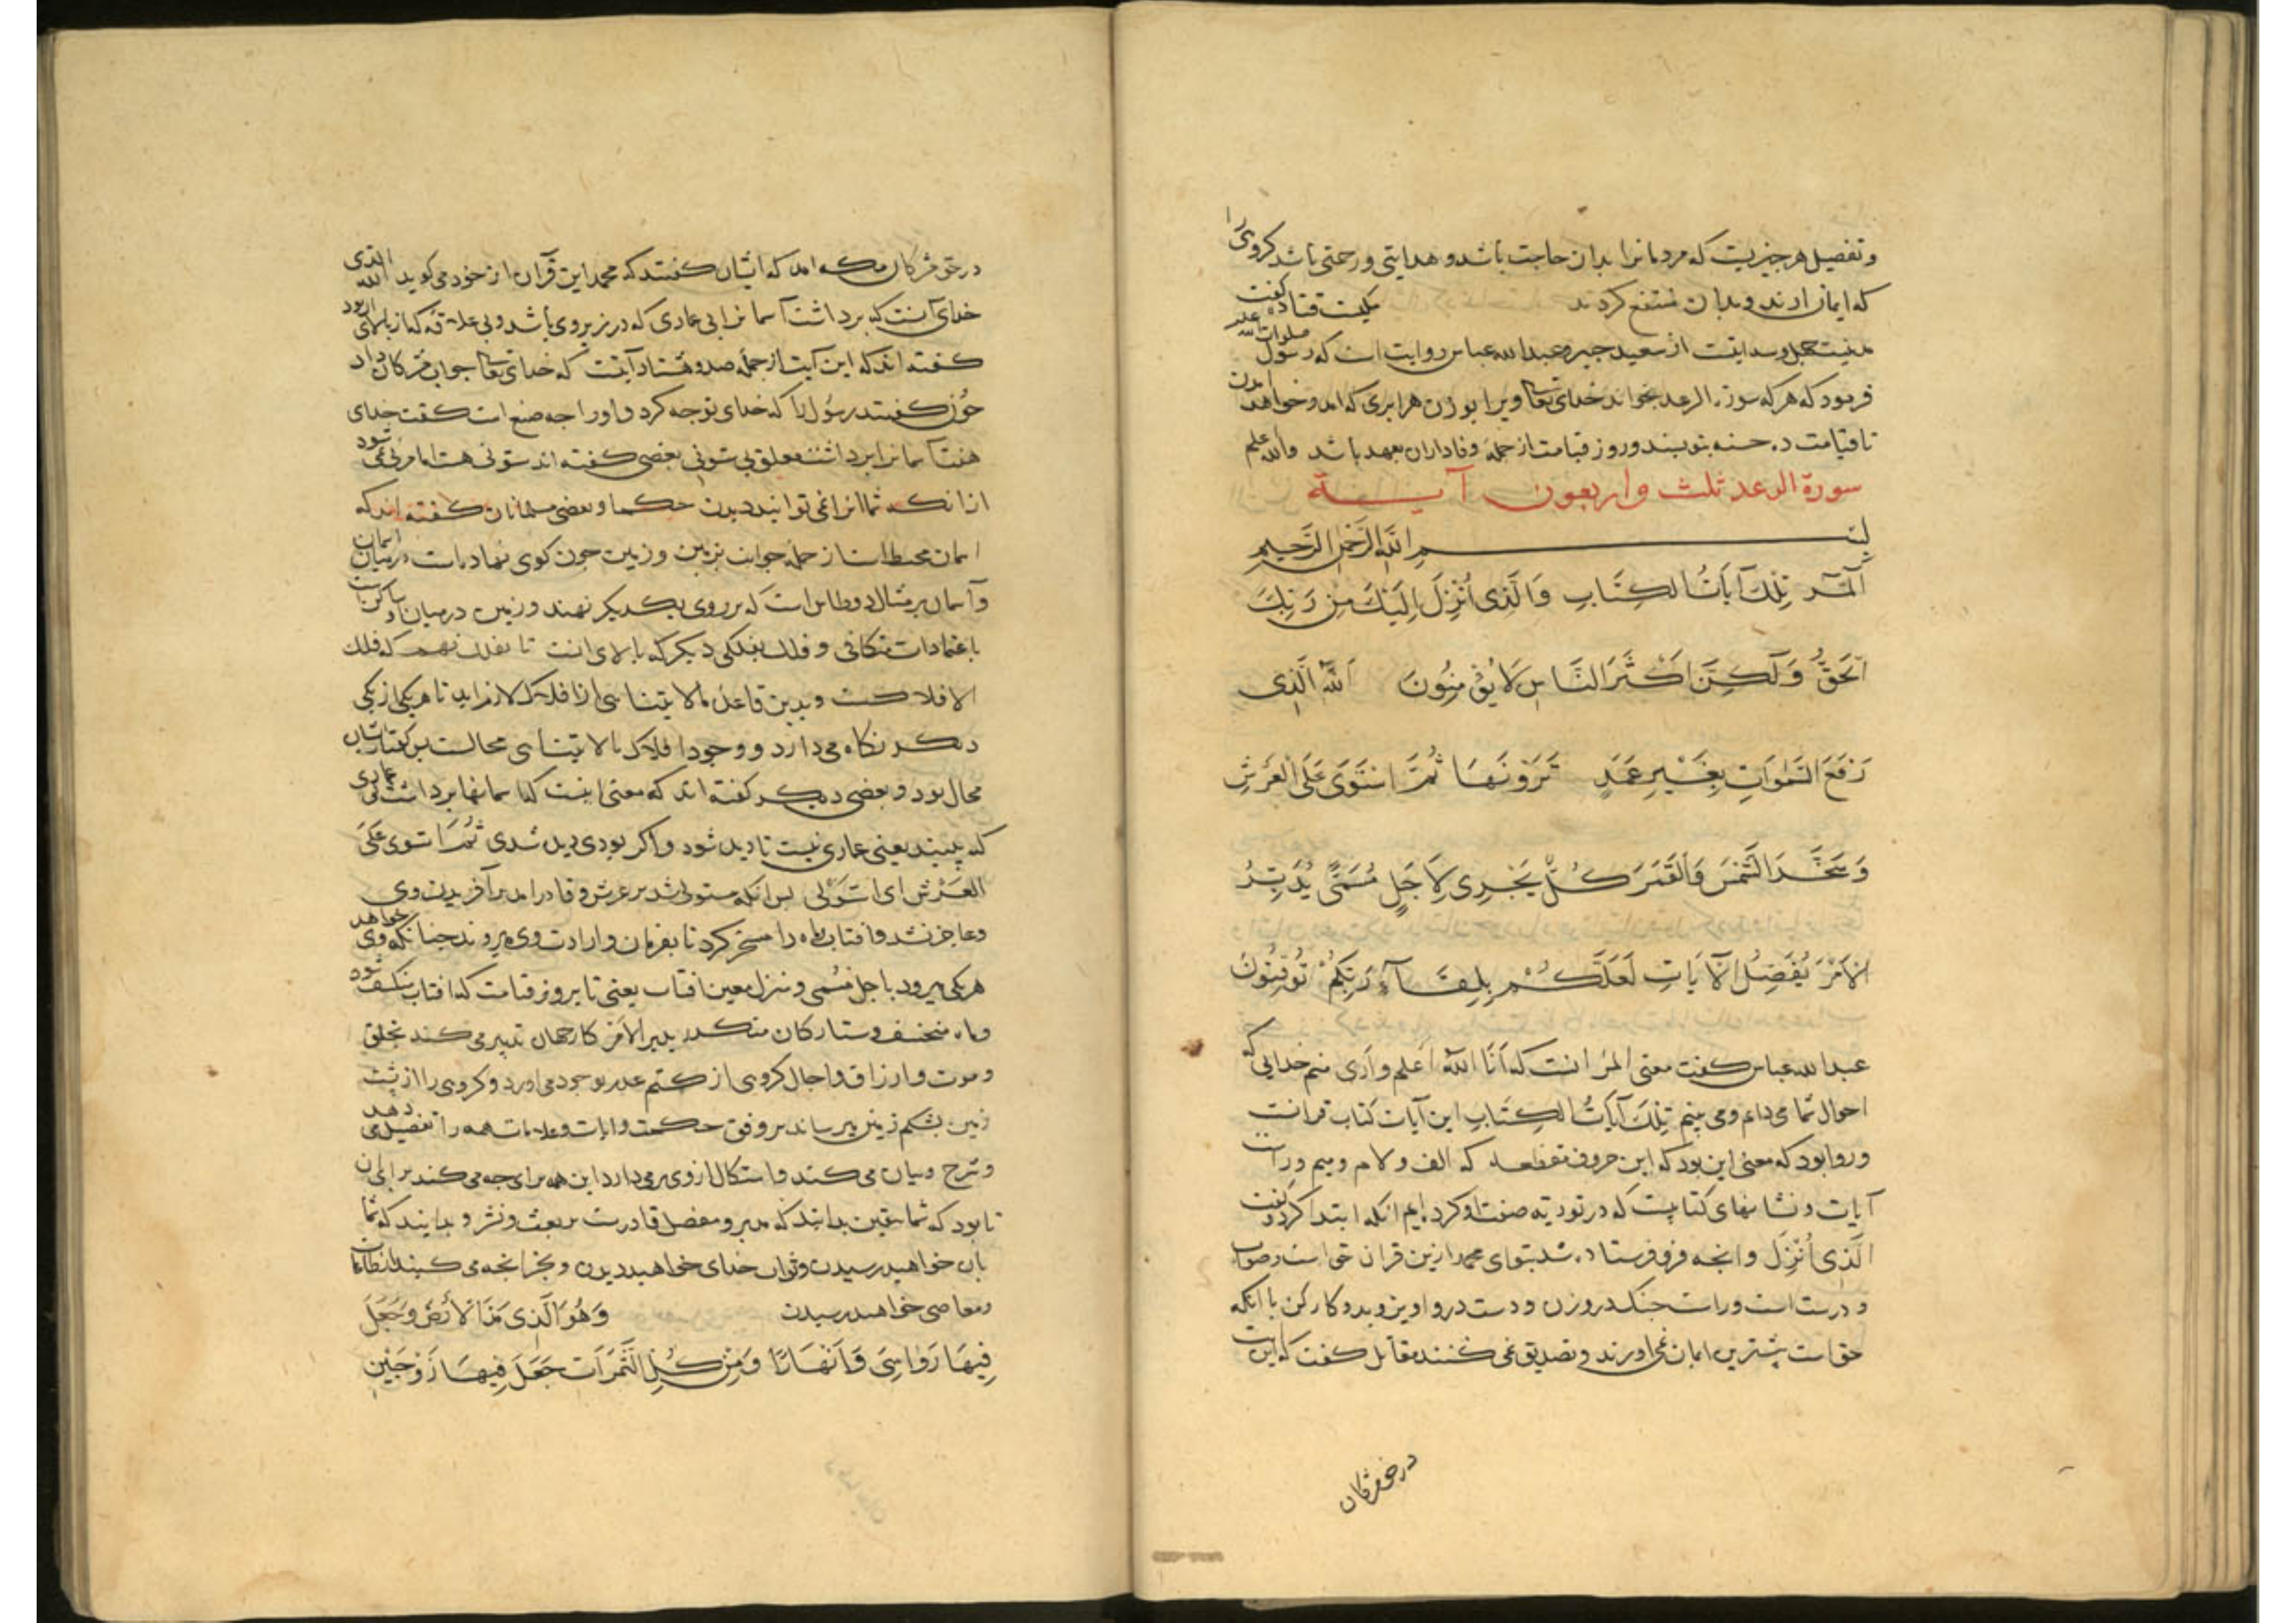 وتفصیل هر چیزیست که مردمانرا بدان حاجت باشد و هدایتی و رحمتی باشد کروهی را
که ایمان ارند و بدان منتفع کردند
مدنیست از سعید جبیر و عبدالله عباس روایت است که رسول صلوات الله علیه
فرمود که هر که سورة الرعد بخواند خدای تعالی ویرا بوزن هر ابری که امد و خواهد امدن
تا قیامت ده حسنه بنویسد و روز قیامت از جمله وفاداران بعهد باشد والله اعلم
سورة الرعد ثلث واربعون آیـــة
بســـم الله الرحمن الرحیم
الٓمٓر تِلْكَ آیَاتُ الكِتَابِ وَالَّذِی اُنْزِلَ اِلَیْكَ مِنْ رَبِّكَ
الْحَقُّ وَلٰكِنَّ اَكْثَرَ النَّاسِ لَا یُؤْمِنُونَ اَللّٰهُ الَّذِی
رَفَعَ السَّمٰوَاتِ بِغَیْرِ عَمَدٍ تَرَوْنَهَا ثُمَّ اسْتَوَى عَلَى الْعَرْشِ
وَسَخَّرَ الشَّمْسَ وَالْقَمَرَ كُلٌّ یَجْرِی لِاَجَلٍ مُسَمًّى یُدَبِّرُ
الْاَمْرَ یُفَصِّلُ الْآیَاتِ لَعَلَّكُمْ بِلِقَآءِ رَبِّكُمْ تُوقِنُونَ
عبدالله عباس كفت معنی المر انست که اَنَا اللّٰهُ اَعلم واَری منم خدایی که
احوال شما می دانم و می بینم تِلْكَ آیَاتُ الكِتَابِ این آیات کتاب قرانست
و روا بود که معنی این بود که این حروف مقطعه که الف و لام و میم و راست
آیات و نشانهای کتابیست که در توریة صفت او کرده ایم انکه ابتدا کرد و گفت
الَّذِی اُنْزِلَ وانچه فرو فرستاده شد بتو ای محمد ازین قران حق است و صواب
و درست است و راست چنک درو زن و دست درو اویز و بدو کار کن با انکه
حق است بیشترین ایمان نمی اورند و تصدیق نمی کنند مقاتل كفت که این ایت
در حق مشرکان
در حق مشرکان مکه امد که ایشان كفتند که محمد این قرآن از خود می کوید الله الذی
خدای آنست که برداشت آسمانرا بی عمادی که در زیر وی باشد و بی علاقه که از بالای او بود
كفته اند که این آیت از جمله صد و هشتاد آیتست که خدای تعالی جواب مشرکان داد
چون كفتند رسول را که خدای تو چه کرد و او را چه صنع است كفت خدای
هفت آسمانرا برداشت معلق بی ستونی بعضی كفته اند ستونی هست اما مرئی نمی شود
ازانکه شما انرا نمی توانید دیدن حکما و بعضی مسلمانان كفته اند که
اسمان محیط است از جمله جوانب بزمین و زمین چون کوی نهاده است درمیان اسمان
و آسمان بر مثال دو طاس است که بر روی یکدیکر نهند و زمین درمیان او ساکن است
دیکر نکاه می دارد و وجود افلاک مالایتناهی محالست پس کفتار شان
محال بود و بعضی دیکر کفته اند که معنی اینست که اسمانها برداشت بی عمادی
که ببینید یعنی عمادی نیست تا دیده شود و اکر بودی دیده شدی ثُمَّ استوی عَلَی
العَرْشِ ای استَوْلٰی پس انکه مستولی شد بر عرش و قادر امد بر آفریدن وی
و عاجز نشد و افتاب و ماه را مسخر کرد تا بفرمان و ارادت وی میروند چنانکه وی خواهد
هر یکی میرود باجل مسمی و منزل معین افتاب یعنی تا بروز قیامت که افتاب منکسف شود
و ماه منخسف و ستارکان منکدر یدبر الاَمر کار جهان تدبیر می کند بخلق
و موت و ارزاق و اجال کروهی از کتم عدم بوجود می اورد و کروهی را از پشت
زمین بشکم زمین میرساند بر وفق حکمت و ایات و علامات همه را تفصیل می دهد
و شرح و بیان می کند و اشکال از وی برمی دارد این همه برای چه می کند برای ان
تا بود که شما یقین بدانید که مدبر و مفصل قادرست بر بعث و نشر و بدانید که شما
بان خواهید رسیدن و ثواب خدای خواهید دیدن و بجزا انچه می کنید از طاعات
و معاصی خواهید رسیدن وَهُوَ الَّذِی مَدَّ الْاَرْضَ وَجَعَلَ
فِیهَا رَوَاسِیَ وَاَنْهَارًا وَمِنْ كُلِّ الثَّمَرَاتِ جَعَلَ فِیهَا زَوْجَیْنِ